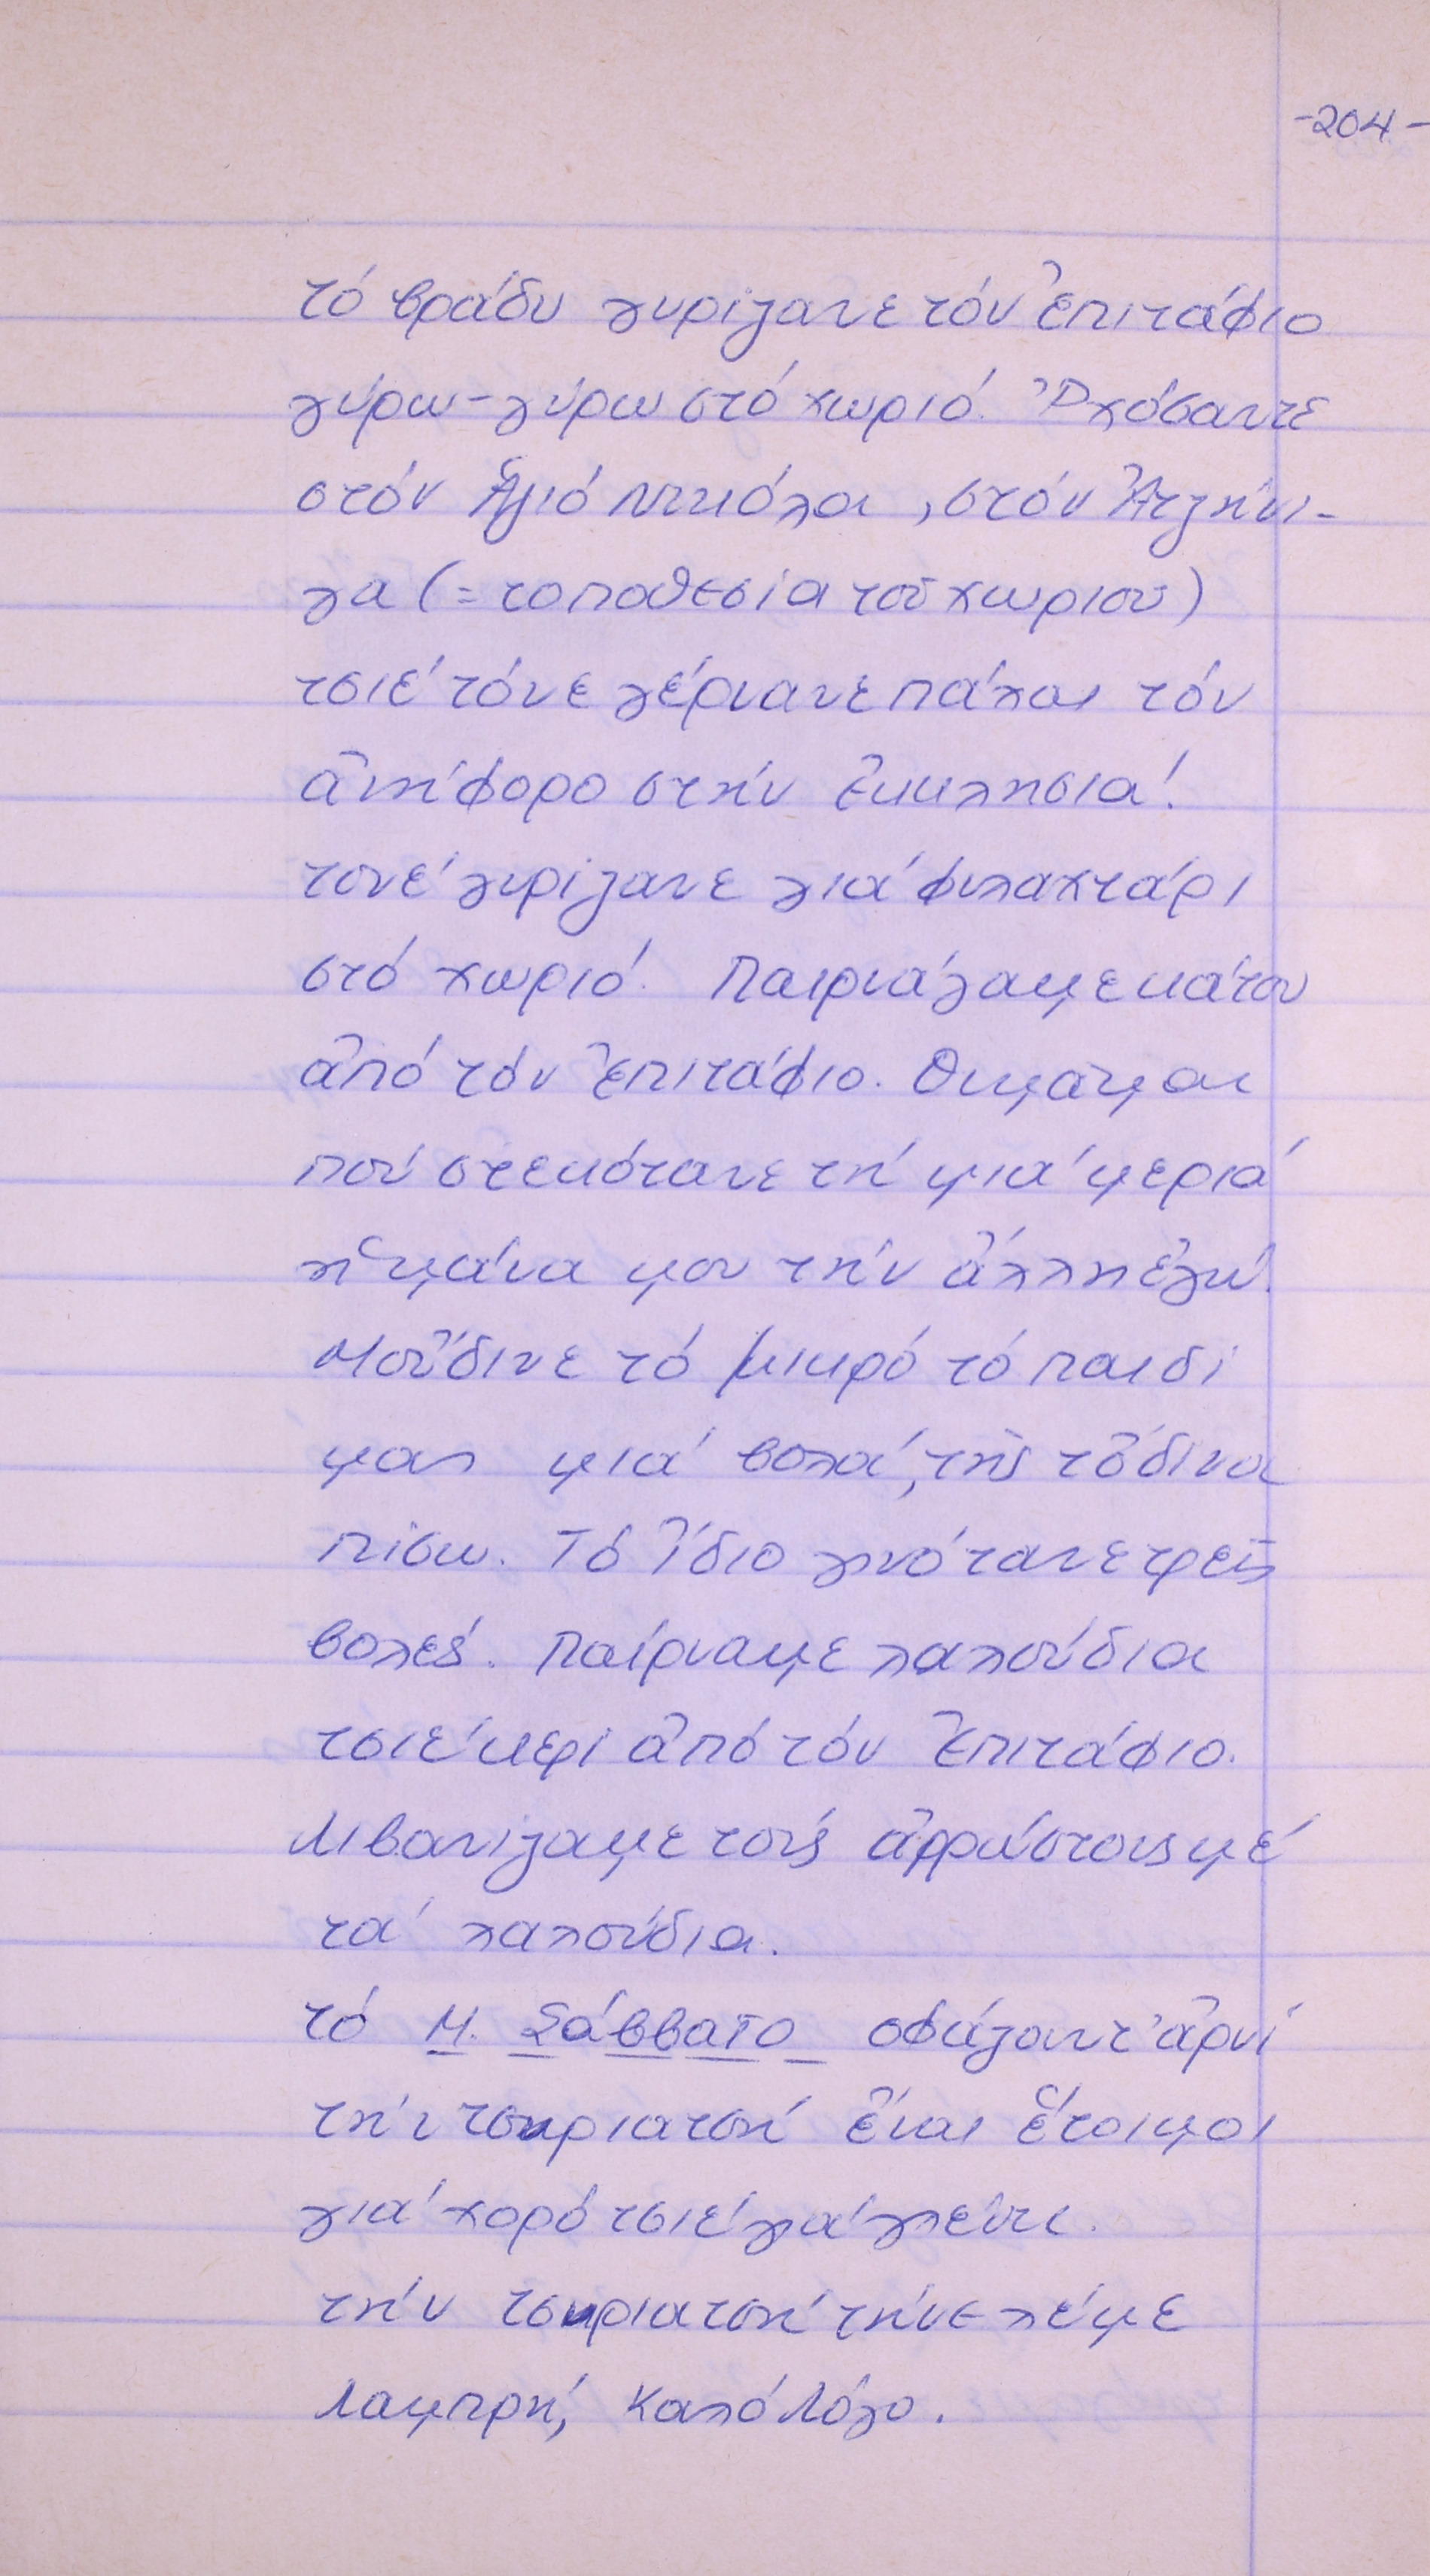 -204-
τό βράδυ γυρίζανε τόν ἐπιτάφιο
γύρω-γύρω στό χωριό. Ἐρχόσαντε
στόν Ἁγιό Νικόλα, στόν Ἀτζήνι-
γα (= τοποθεσία τοῦ χωριοῦ)
τσιέ τόνε γέρνανε πάλαι τόν
ἀνήφορο στήν ἐκκλησιά!
τονέ γυρίζανε γιά φυλαχτάρι
στό χωριό. Παιρνάγαμε κάτου
ἀπό τόν ἐπιτάφιο. Θυμᾶμαι
πού στεκότανε τή μιά μεριά
ἡ μάνα μου τήν ἄλλη ἐγώ.
Μοὔδινε τό μικρό τό παιδί
μας μιά βολά, τῆς τὄδινα
πίσω. Τό ἴδιο γινότανε τρεῖς
βολές. Παίρναμε λαλούδια
τσιέ κερί ἀπό τόν ἐπιτάφιο.
Λιβανίζαμε τούς ἀρρώστους μέ
τά λαλούδια.
τό Μ. Σάββατο σφάζουν τ' ἀρνί
τήν τσυριατσή εἶναι ἕτοιμοι
γιά χορό τσιέ γιά γλέντι.
τήν τσυριατσή τήνε λέμε
Λαμπρή, Καλό Λόγο.